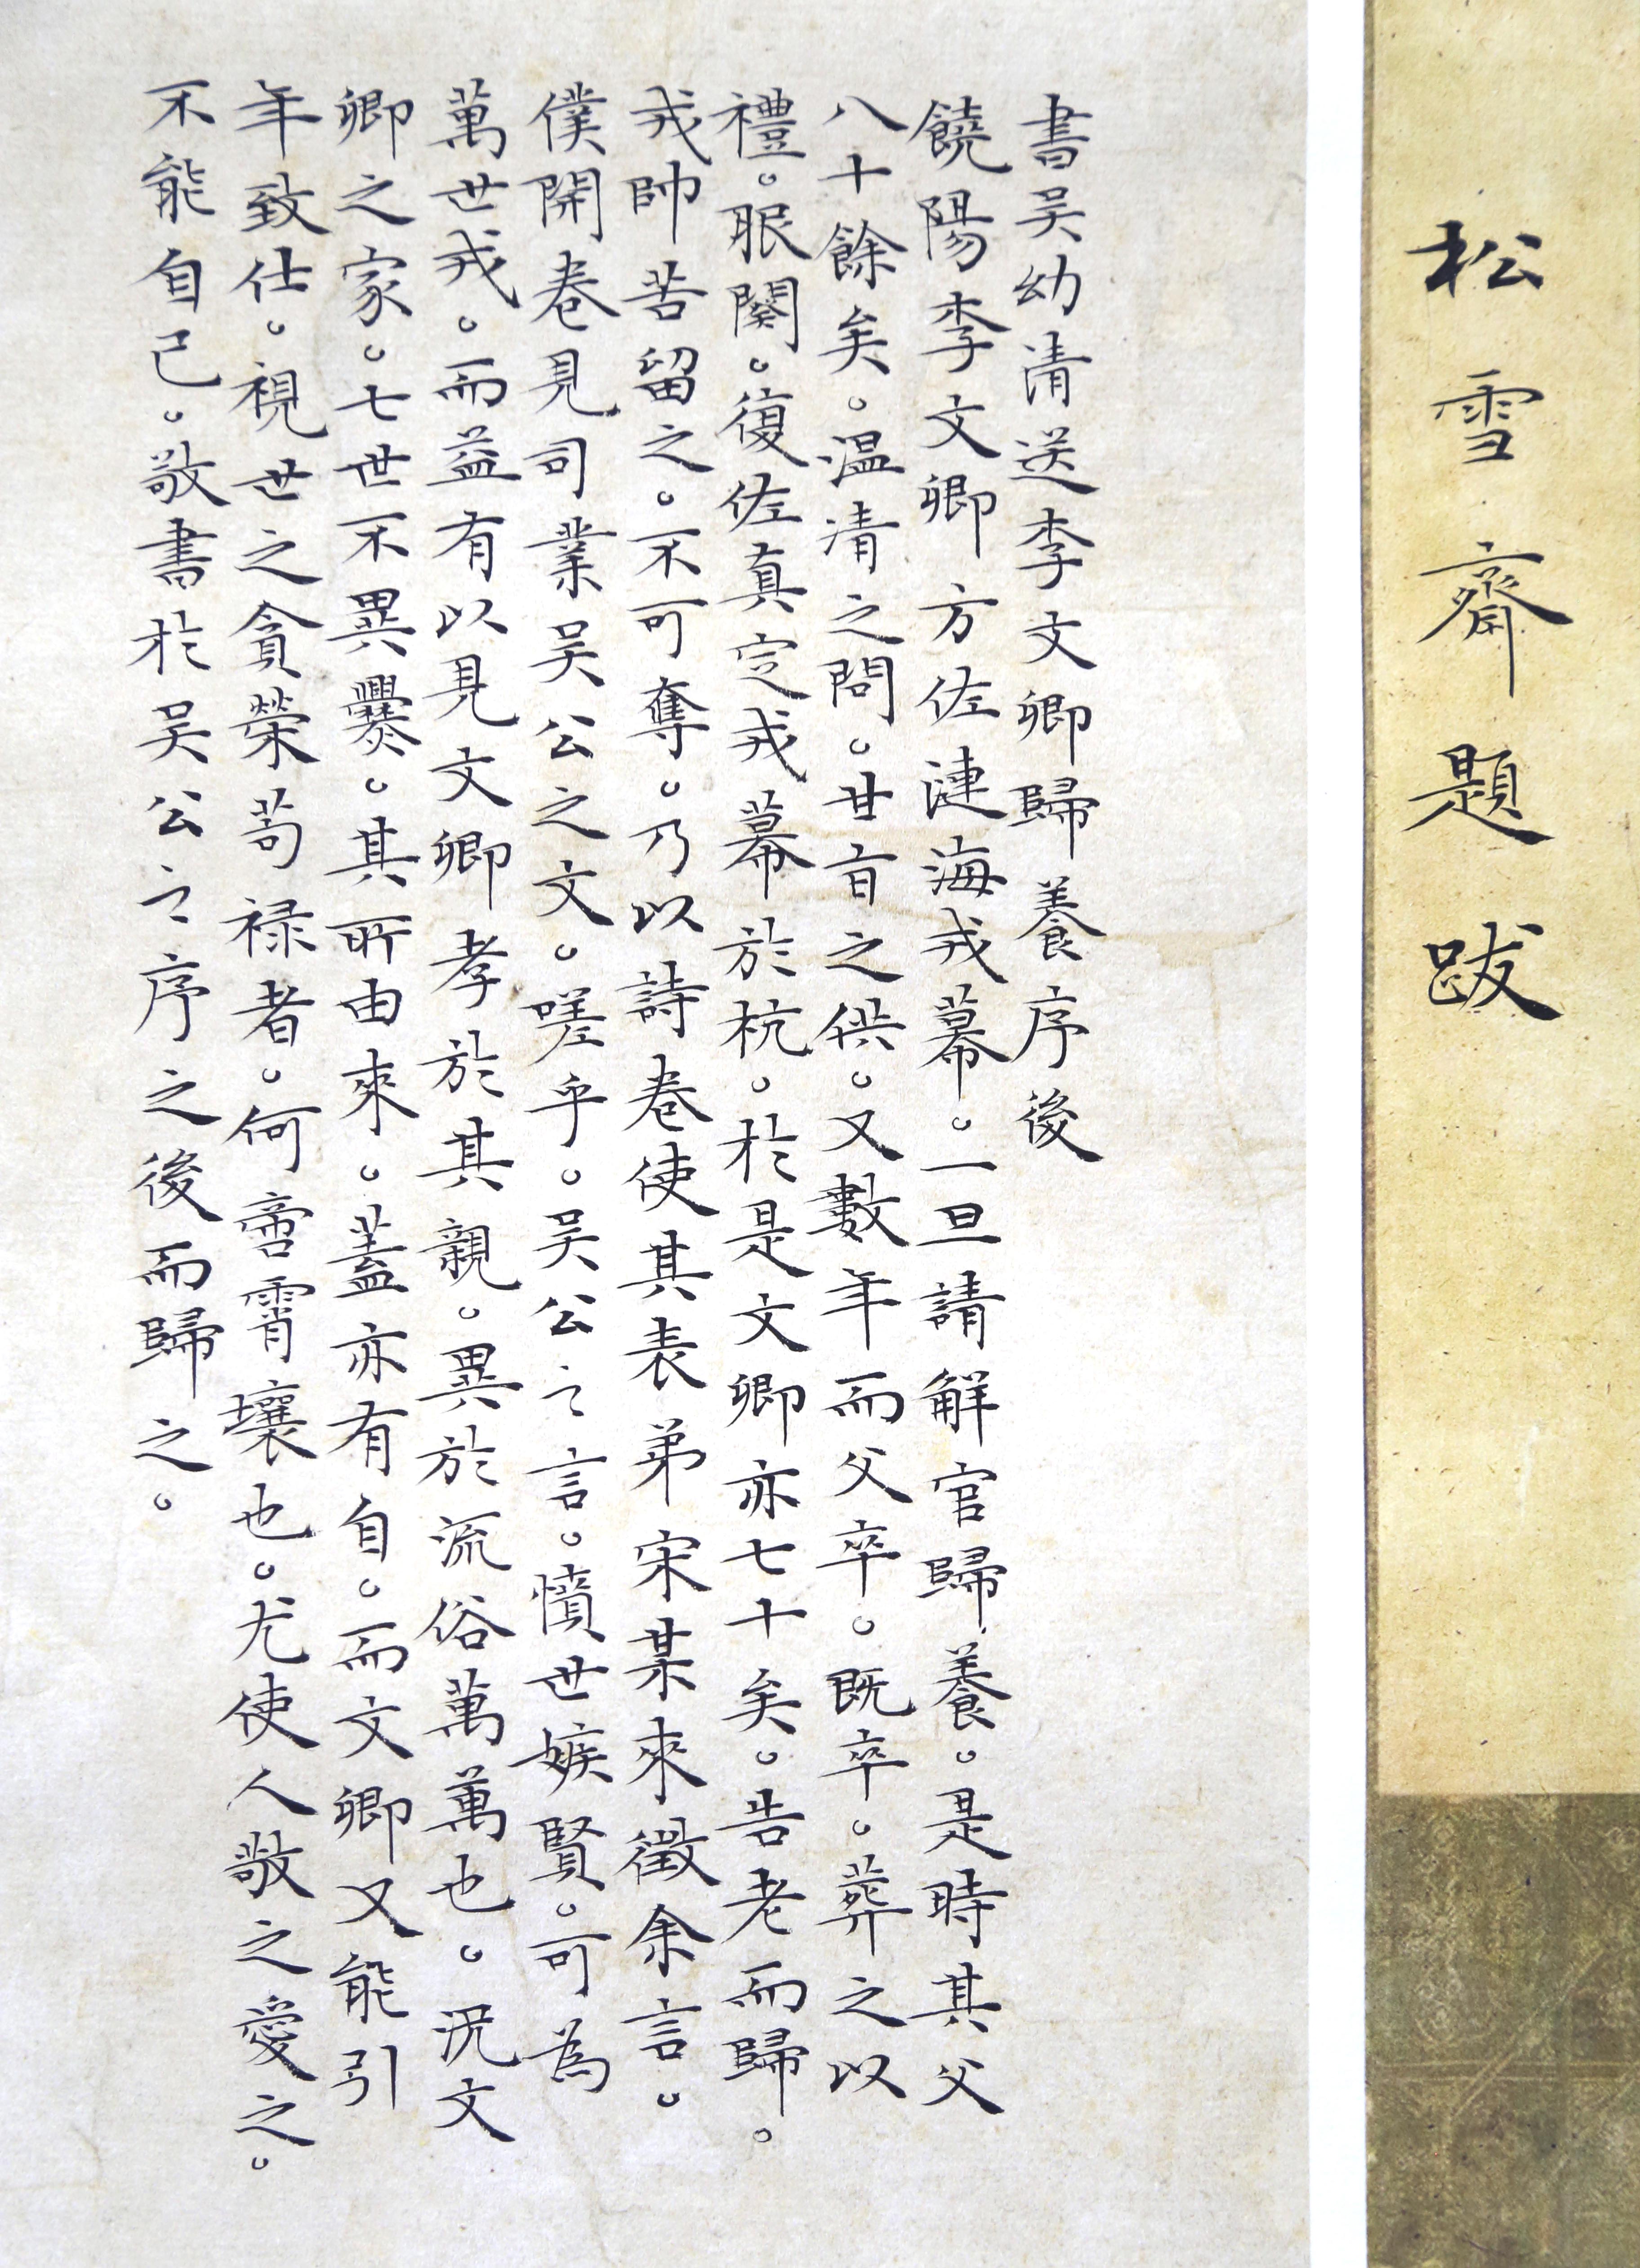 松雪齋題跋
書吳幼清送李文卿歸養序後
饒陽李文卿方佐漣海戎幕。一旦請解官歸養。是時其父
八十餘矣。温清之問。甘旨之供。又數年而父卒。既卒。葬之以
禮。服闋。復佐真定戎幕於杭。於是文卿亦七十矣。告老而歸。
戎帥苦留之。不可奪。乃以詩卷使其表弟宋某來徵余言。
僕開卷見司業吳公之文。嗟乎。吳公之言。憤世嫉賢。可為
萬世戎。而益有以見文卿孝於其親。異於流俗萬萬也。況文
卿之家。七世不異爨。其所由來。蓋亦有自。而文卿又能引
年致仕。視世之貪榮苟禄者。何啻霄壤也。尤使人敬之愛之。
不能自已。敬書於吳公之序之後而歸之。